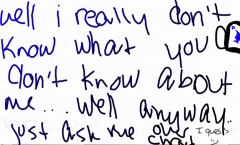 well i really don't
know what you
don't know about
me... well anyway..
just ask me our I guess
chat :)